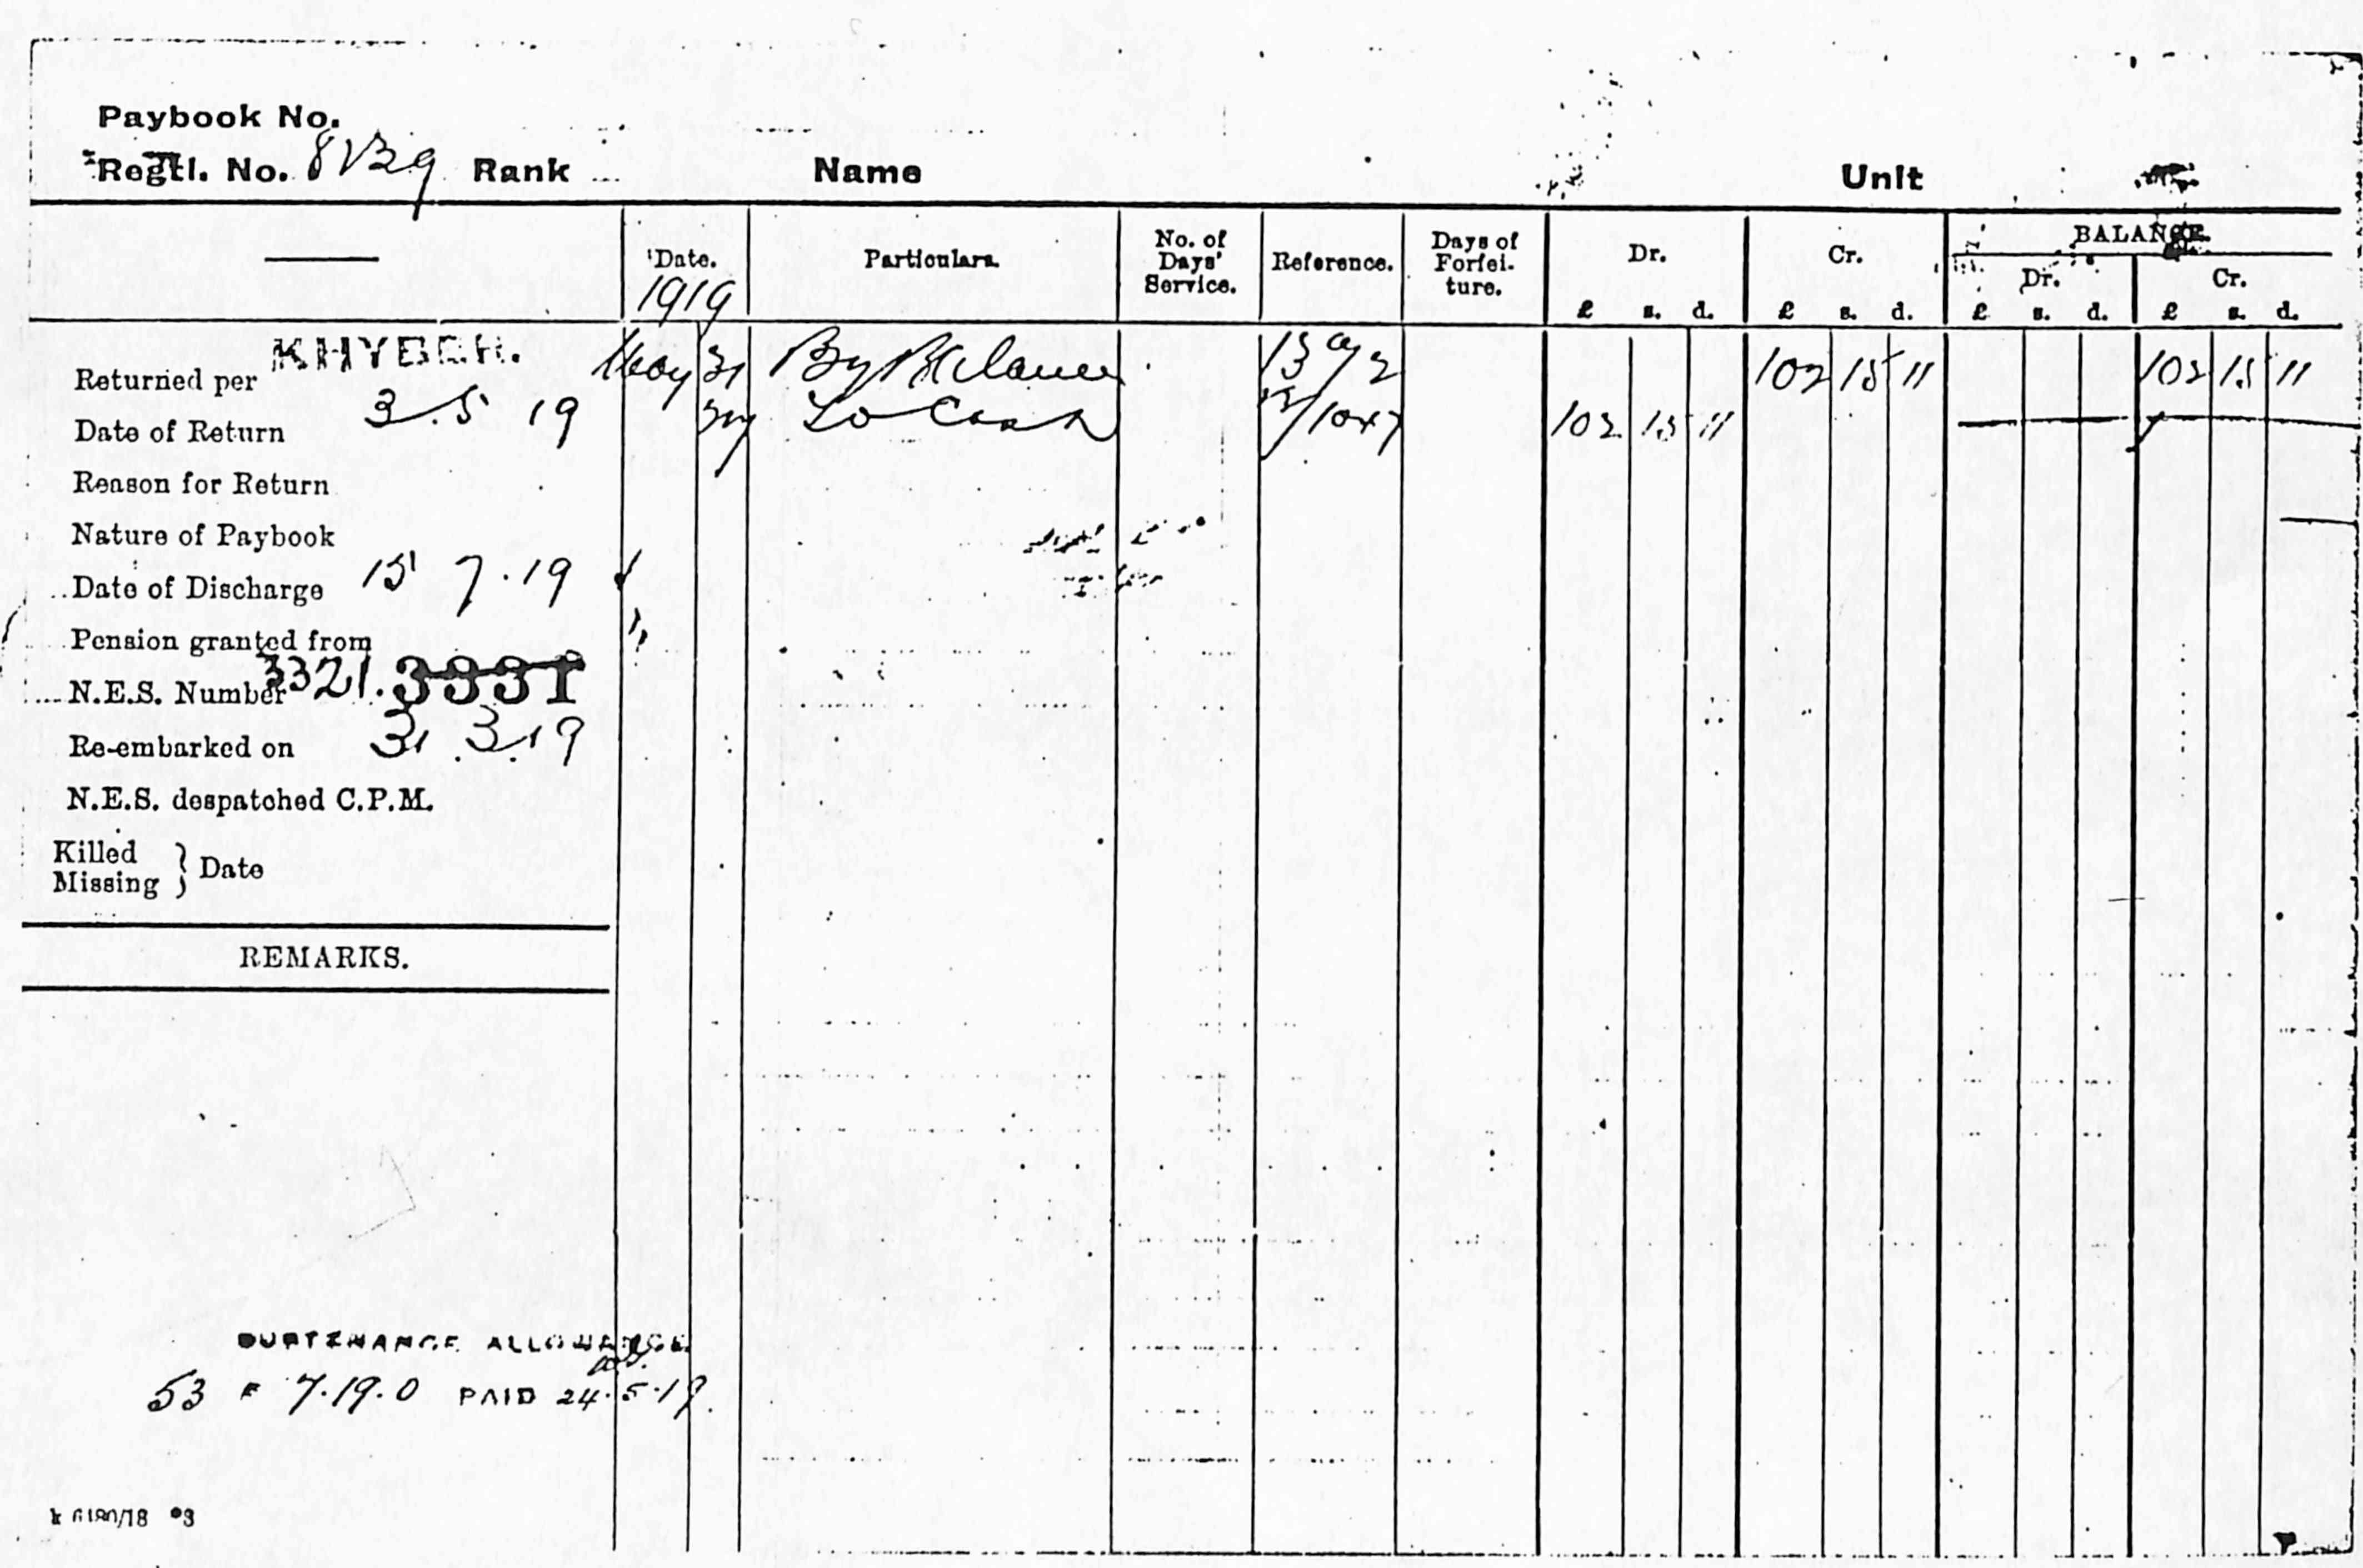 Paybook No.
Regtl. No. Rank Name Unit
Date. Particulars. No. of Days' Service. Reference. Days of Forfei-ture. Dr. Cr. BALANCE.
1919 Dr. Cr.
£ s. d. £ s. d. £ s. d. £ s. d.
KHYBER.
Returned per
May 31 By Balance 102 15 11 102 15 11
Date of Return 3.5.19
To Cash 102 15 11
Reason for Return
Nature of Paybook
Date of Discharge 15 7.19
Pension granted from
N.E.S. Number 3321. 3331
Re-embarked on 31 3.19
N.E.S. despatched C.P.M.
Killed
Missing } Date
REMARKS.
SUSTENANCE ALLOWANCE
53 £ 7.19.0 PAID 24.5.19.
6180/18